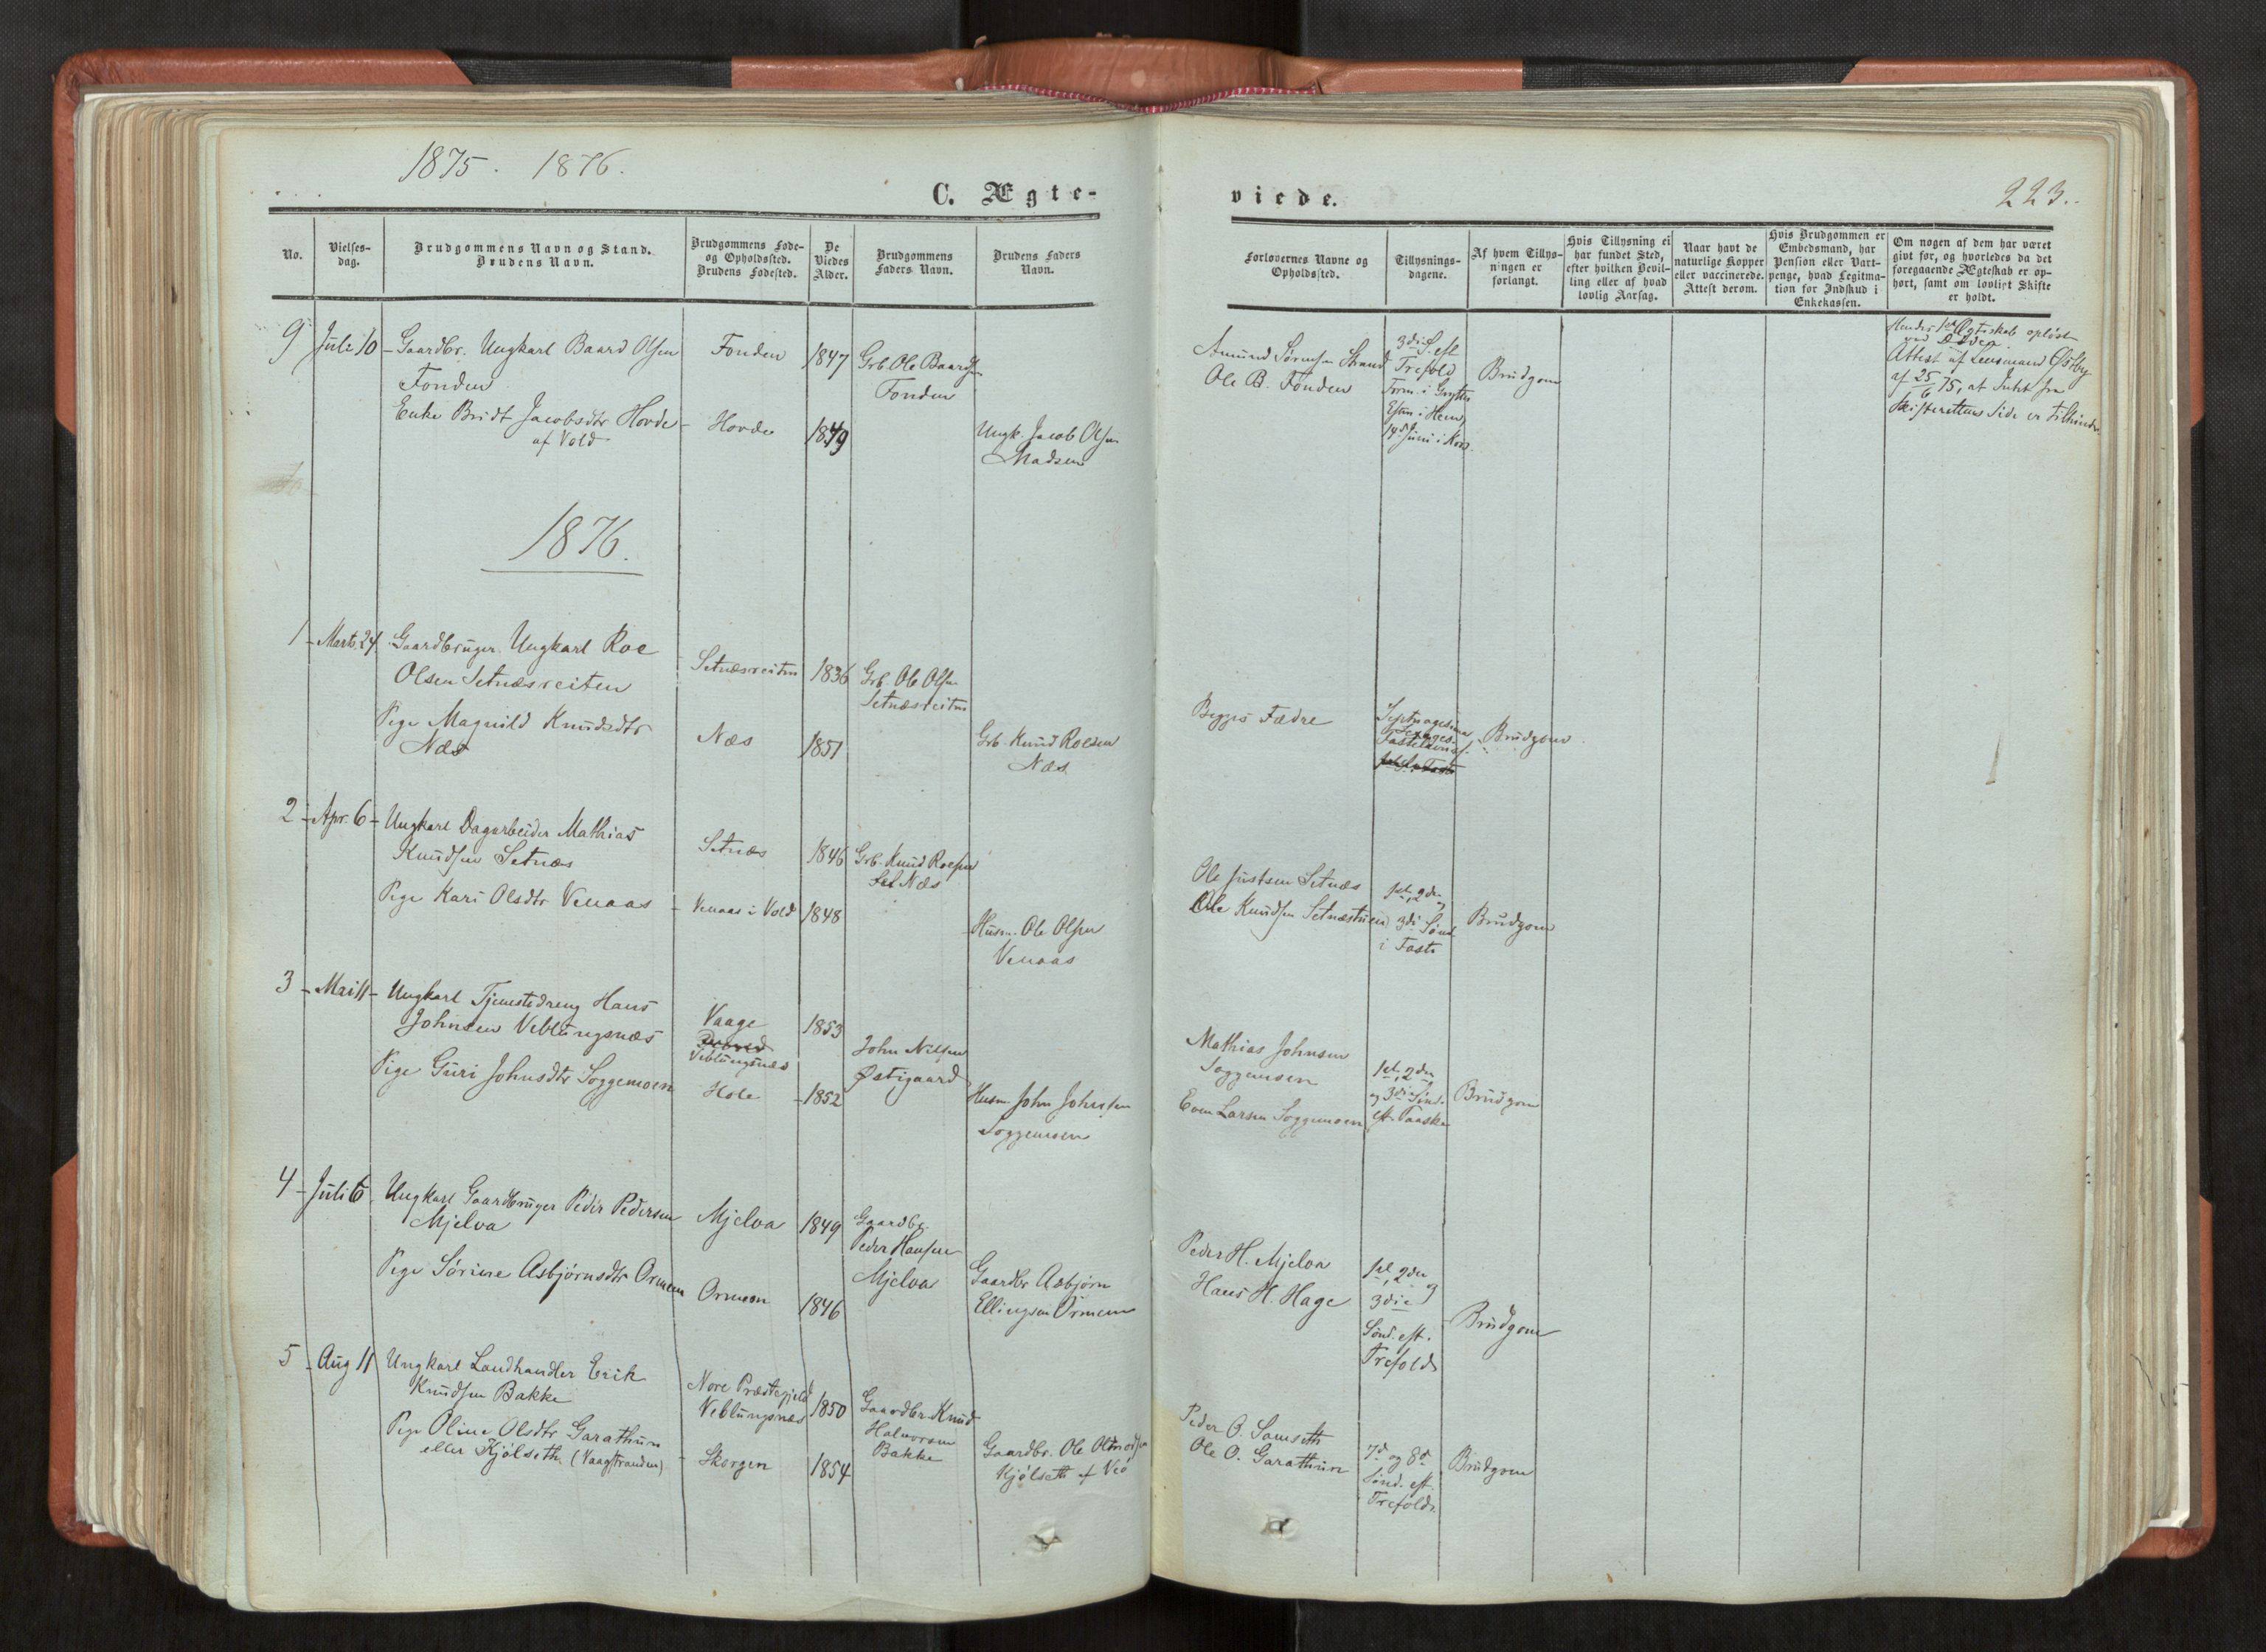 1875. 1876.
C. Ægte-
No.
Vielses-
dag.
Brudgommens Navn og Stand.
Brudens Navn.
Brudgommens Føde-
og Opholdssted.
Brudens Fødested.
De
Viedes
Alder.
Brudgommens
Faders Navn.
Brudens Faders
Navn.
9 Juli 10 Gaardbr. Ungkarl Baard Olsen
Fonden
Fonden 1847 Grb. Ole Baardsen
Fonden
Enke Bridt Jacobsdtr Hovde
af Vold
Hovde 1849
Ungk. Jacob Olsen
Madsen
1876.
1 Marts 24 Gaardbruger Ungkarl Roe
Olsen Setnæsreiten
Setnæsreiten 1836 Grb. Ole Olsen
Setnæsreiten
Pige Magnild Knudsdtr
Næs
Næs 1851
Grb. Knud Roesen
Næs
2 Apr. 6 Ungkarl Dagarbeider Mathias
Knudsen Setnæs
Setnæs 1846 Grb. Knud Roesen
Næs
Pige Kari Olsdtr Venaas
Venaas i Vold 1848
Husm. Ole Olsen
Venaas
3 Mai 11 Ungkarl Tjenestedreng Hans
Johnsen Veblungsnæs
Vaage
Veblungsnæs
1853
John Nilsen
Østigaard
Pige Guri Johnsdtr Soggemoen
Hole 1852
Husm. John Johnsen
Soggemoen
4 Juli 6 Ungkarl Gaardbruger Peder Pedersen
Mjelva
Mjelva 1849 Gaardbr.
Peder Hansen
Mjelva
Pige Sørine Asbjørnsdtr Ormem
Ormem 1846
Gaardbr Asbjørn
Ellingsen Ormem
5 Aug 11 Ungkarl Landhandler Erik
Knudsen Bakke
Nore Præstegjeld
Veblungsnæs
1850 Gaardbr. Knud
Halvorsen
Bakke
Pige Oline Olsdtr Garathun
eller Kjølseth (Vaagstranden)
Skorgen 1854
Gaardbr. Ole
Kjølseth af Veø
viede.
223.
Forlovernes Navne og
Opholdssted.
Tillysnings-
dagene.
Af hvem Tillys-
ningen er
forlangt.
Hvis Tillysning ei
har fundet Sted,
efter hvilken Bevil-
ling eller af hvad
lovlig Aarsag.
Naar havt de
naturlige Kopper
eller vaccinerede.
Attest derom.
Hvis Brudgommen er
Embedsmand, har
Pension eller Vart-
penge, hvad Legitima-
tion for Indskud i
Enkekassen.
Om nogen af dem har været
givt før, og hvorledes da det
foregaaende Ægteskab er op-
hørt, samt om lovligt Skifte
er holdt.
Amund Sørensen Strand
Ole B. Fonden
3di S. eft
Trefold
Form. i Grytten
Eftm i Hen
Brudgom
Hendes 1ste Ægteskab opløst
ved Døden.
Attest af Lensmand Østby
af 25/6 75, at Intet fra
Skifterettens Side er til Hinder
Begges Fædre
Septuagesima
Sexages.
Fastelavnsf.
Brudgom
Ole Justsen Setnæs
Ole Knudsen Setnæstuen
1ste, 2den
og
3di Sønd.
i Faste
Brudgom
Mathias Johnsen
Soggemoen
Even Larsen Soggemoen
1ste, 2den
og 3di Sønd.
eft. Paaske
Brudgom
Peder H. Mjelva
Hans H. Hage
1ste, 2den
og
3die
Sønd. eft.
Trefold.
Brudgom
Peder O. Samseth
Ole O. Garathun
7d og 8d
Sønd. eft.
Trefold.
Brudgom